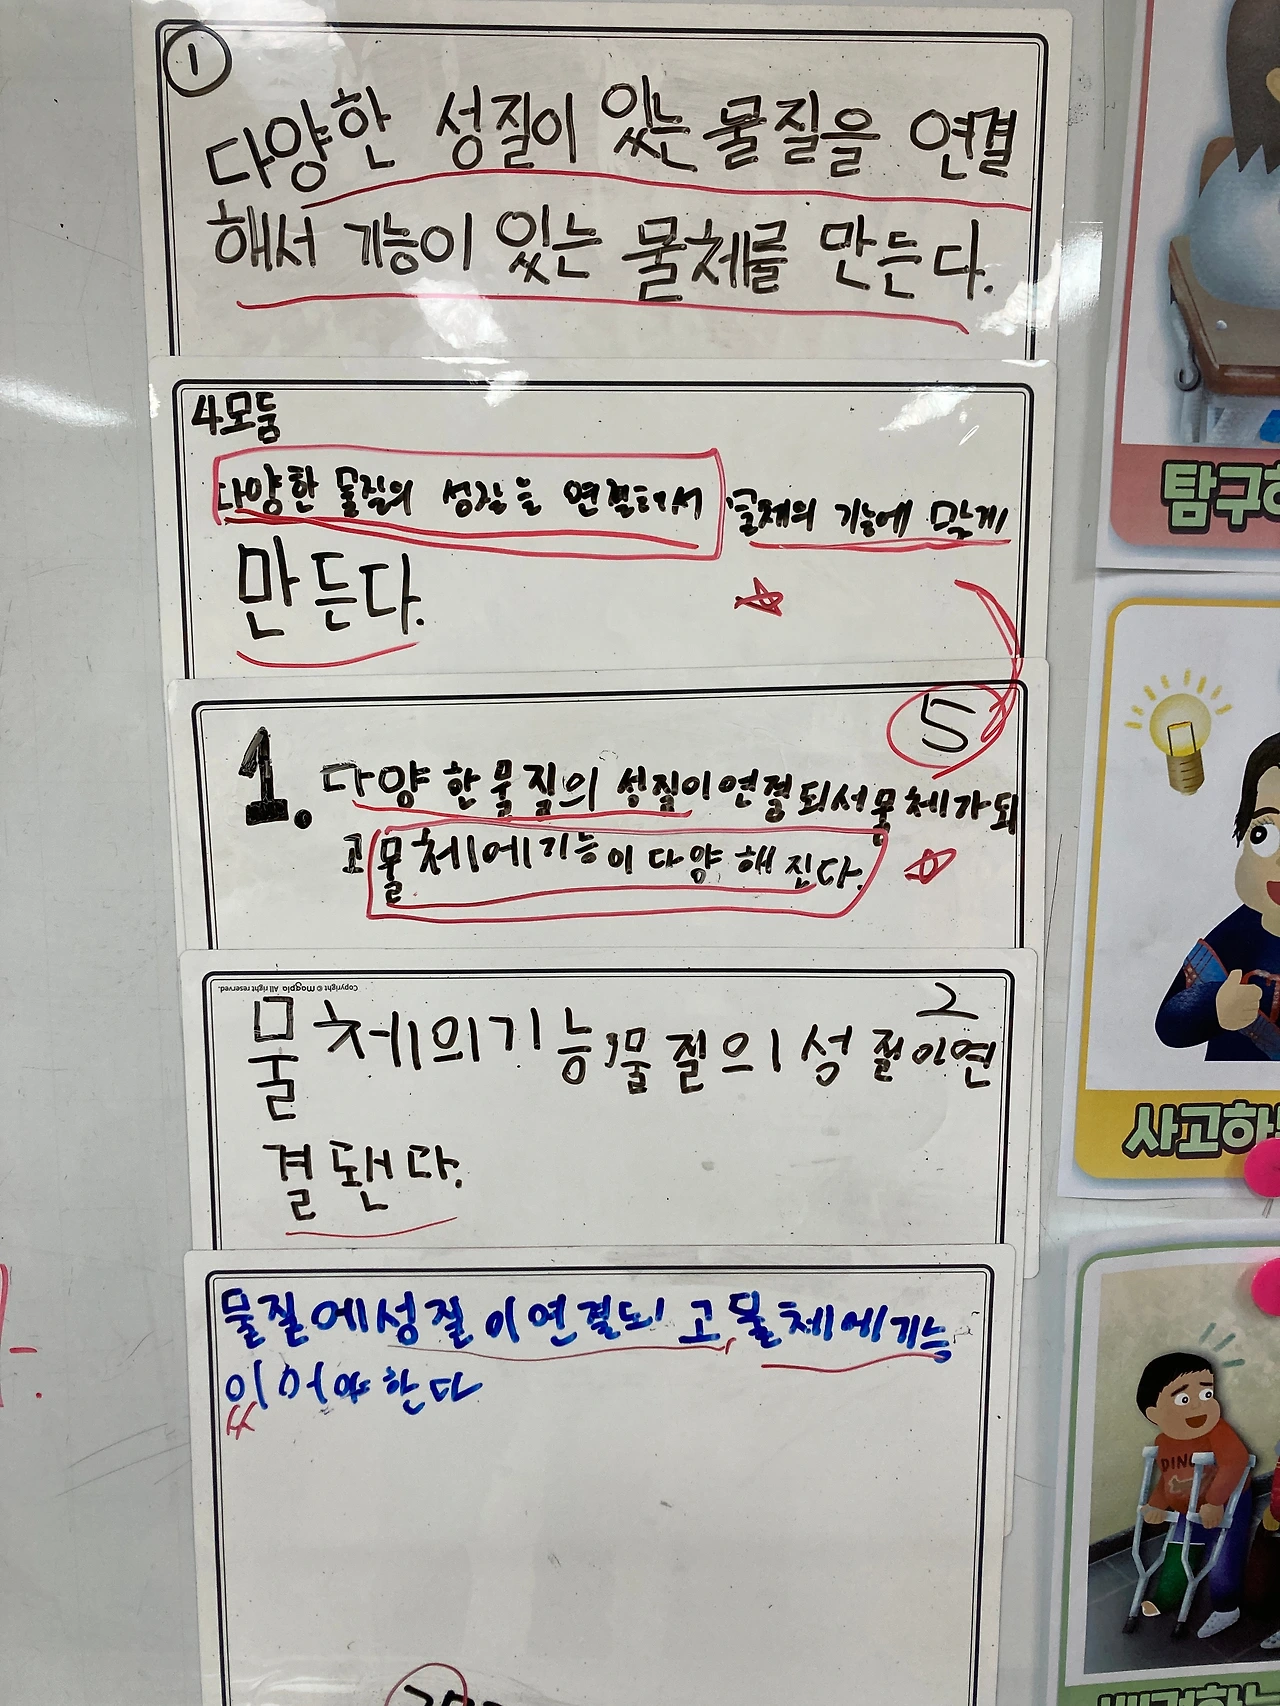 ①
다양한 성질이 있는 물질을 연결
해서 기능이 있는 물체를 만든다.
4모둠
다양한 물질의 성질을 연결되서 물체의 기능에 맞게
만든다.
5
1. 다양한물질의 성질이연결되서물체가되
고물체에기능이다양해진다.
Copyright © Magpia All right reserved.
2
물체의기능,물질의성질이연
결됀다.
물질에성질이연결되고,물체에기능
이어야한다
탐구하
사고하
DINO